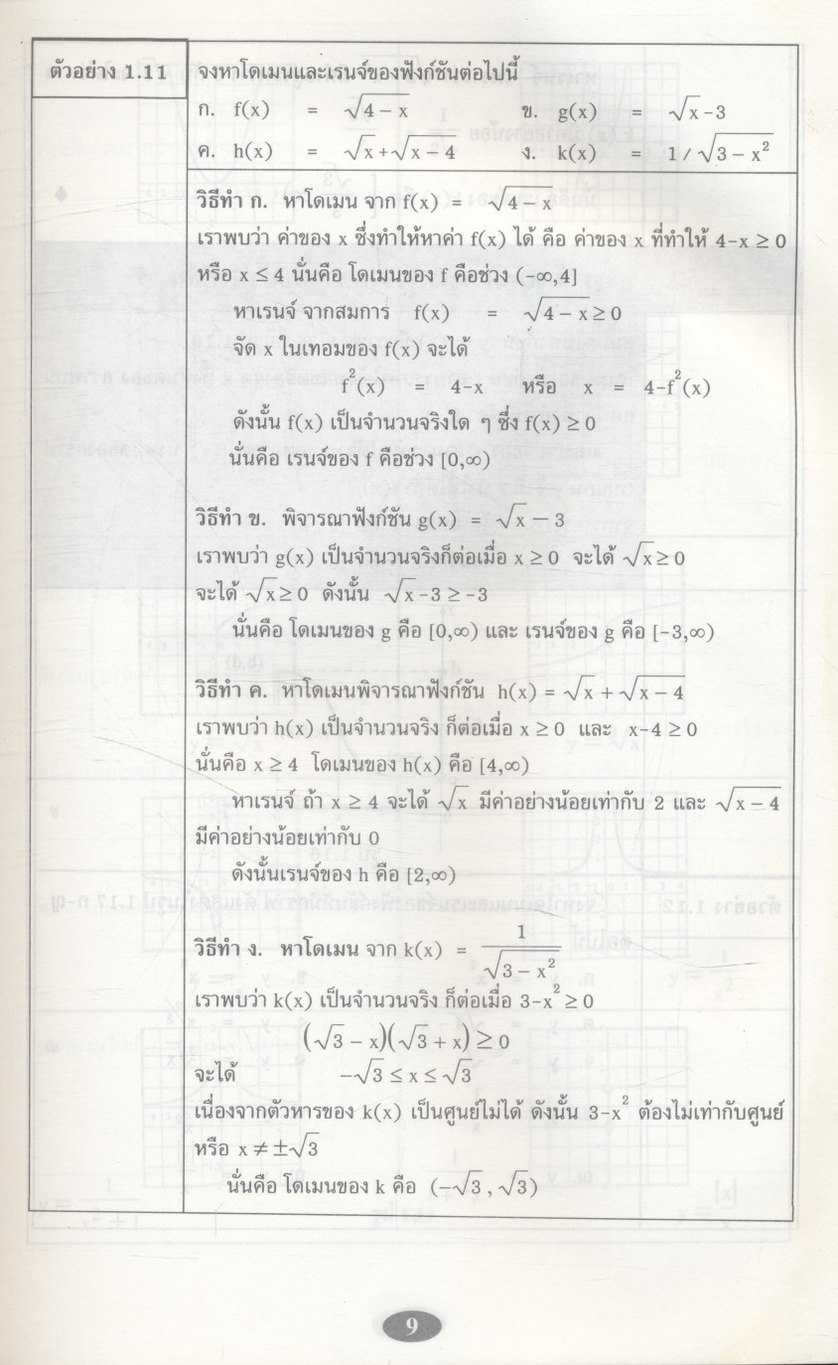 ตัวอย่าง 1.11
จงหาโดเมนและเรนจ์ของฟังก์ชันต่อไปนี้
ก. f(x) = √(4 – x) ข. g(x) = √x - 3
ค. h(x) = √x + √(x – 4) ง. k(x) = 1 / √(3 – x²)
วิธีทำ ก. หาโดเมน จาก f(x) = √(4 – x)
เราพบว่า ค่าของ x ซึ่งทำให้หาค่า f(x) ได้ คือ ค่าของ x ที่ทำให้ 4-x ≥ 0
หรือ x ≤ 4 นั่นคือ โดเมนของ f คือช่วง (-∞,4]
หาเรนจ์ จากสมการ f(x) = √(4 – x) ≥ 0
จัด x ในเทอมของ f(x) จะได้
f²(x) = 4-x หรือ x = 4-f²(x)
ดังนั้น f(x) เป็นจำนวนจริงใด ๆ ซึ่ง f(x) ≥ 0
นั่นคือ เรนจ์ของ f คือช่วง [0,∞)
วิธีทำ ข. พิจารณาฟังก์ชัน g(x) = √x – 3
เราพบว่า g(x) เป็นจำนวนจริงก็ต่อเมื่อ x ≥ 0 จะได้ √x ≥ 0
จะได้ √x ≥ 0 ดังนั้น √x -3 ≥ -3
นั่นคือ โดเมนของ g คือ [0,∞) และ เรนจ์ของ g คือ [-3,∞)
วิธีทำ ค. หาโดเมนพิจารณาฟังก์ชัน h(x) = √x + √(x – 4)
เราพบว่า h(x) เป็นจำนวนจริง ก็ต่อเมื่อ x ≥ 0 และ x-4 ≥ 0
นั่นคือ x ≥ 4 โดเมนของ h(x) คือ [4,∞)
หาเรนจ์ ถ้า x ≥ 4 จะได้ √x มีค่าอย่างน้อยเท่ากับ 2 และ √(x – 4)
มีค่าอย่างน้อยเท่ากับ 0
ดังนั้นเรนจ์ของ h คือ [2,∞)
วิธีทำ ง. หาโดเมน จาก k(x) = 1 / √(3 – x²)
เราพบว่า k(x) เป็นจำนวนจริง ก็ต่อเมื่อ 3-x² ≥ 0
(√3 – x)(√3 + x) ≥ 0
จะได้ –√3 ≤ x ≤ √3
เนื่องจากตัวหารของ k(x) เป็นศูนย์ไม่ได้ ดังนั้น 3-x² ต้องไม่เท่ากับศูนย์
หรือ x ≠ ±√3
นั่นคือ โดเมนของ k คือ (–√3 , √3)
9